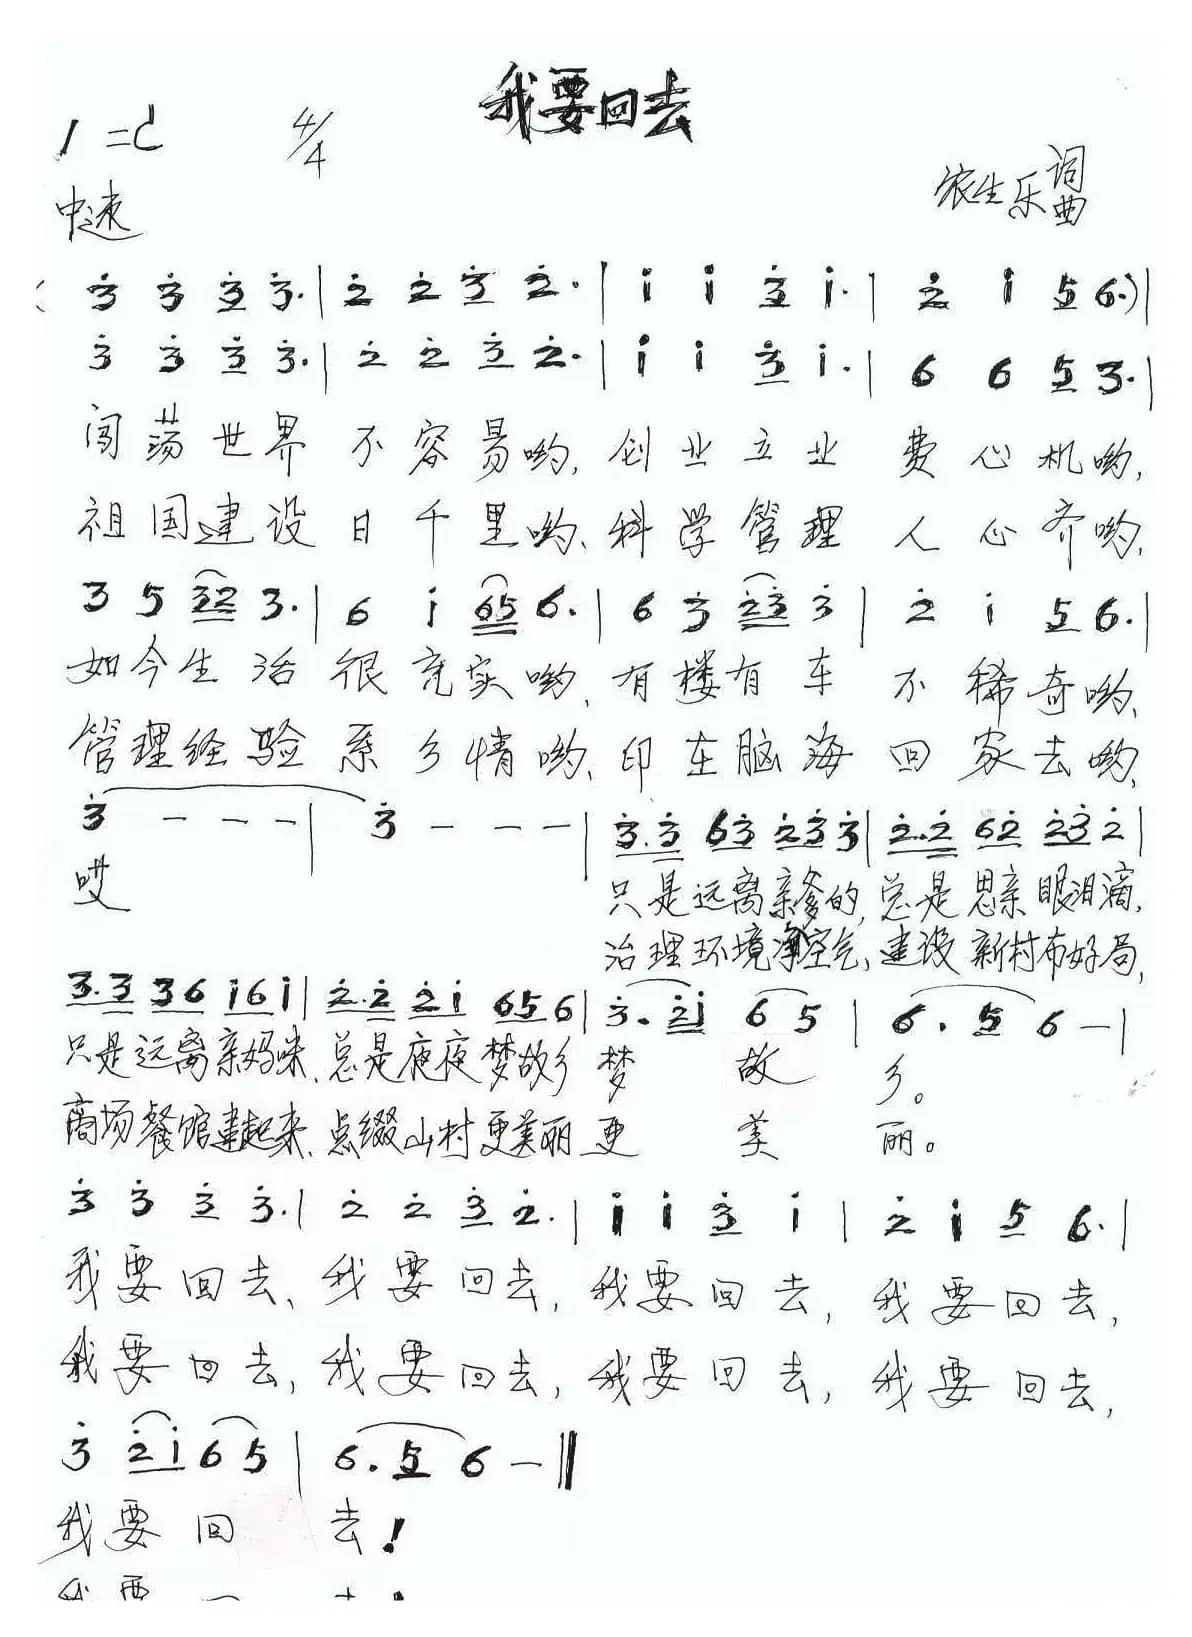 我要回去
1=C 4/4
农生乐 词曲
中速
(3̇ 3̇ 3̲̇ 3̇. | 2̇ 2̇ 3̲̇ 2̇. | 1̇ 1̇ 3̲̇ 1̇. | 2̇ 1̇ 5̲ 6.) |
3̇ 3̇ 3̲̇ 3̇. | 2̇ 2̇ 3̲̇ 2̇. | 1̇ 1̇ 3̲̇ 1̇. | 6 6 5̲ 3. |
闯荡世界 不容易哟, 创业立业 费心机哟,
祖国建设 日千里哟、科学管理 人心齐哟,
3 5 3̳2̳ 3. | 6 1̇ 6̳5̳ 6. | 6 3̇ 2̳̇3̳̇ 3̇ | 2̇ 1̇ 5̲ 6. |
如今生活 很充实哟, 有楼有车 不稀奇哟、
管理经验 系乡情哟、印在脑海 回家去哟,
3̇ - - - | 3̇ - - - | 3̲̇.3̳̇ 6̲3̲̇ 2̳̇3̳̇3̲̇ | 2̲̇.2̳̇ 6̲2̲̇ 2̳̇3̳̇2̲̇ |
哎 只是远离亲爹的, 总是思亲眼泪滴,
治理环境净空气, 建设新村布好局,
3̲.3̳ 3̲6̲ 1̳̇6̳1̲̇ | 2̲̇.2̳̇ 2̲̇1̲̇ 6̳5̳6̲ | 3̇. 2̳̇1̳̇ 6 5 | 6. 5̲ 6 - |
只是远离亲妈咪、总是夜夜梦故乡 梦 故 乡。
商场餐馆建起来、点缀山村更美丽 更 美 丽。
3̇ 3̇ 3̲̇ 3̇. | 2̇ 2̇ 3̲̇ 2̇. | 1̇ 1̇ 3̲̇ 1̇ | 2̇ 1̇ 5̲ 6. |
我要回去、我要回去, 我要回去, 我要回去,
我要回去, 我要回去, 我要回去, 我要回去,
3̇ 2̲̇1̲̇ 6 5 | 6. 5̲ 6 - ‖
我要回 去!